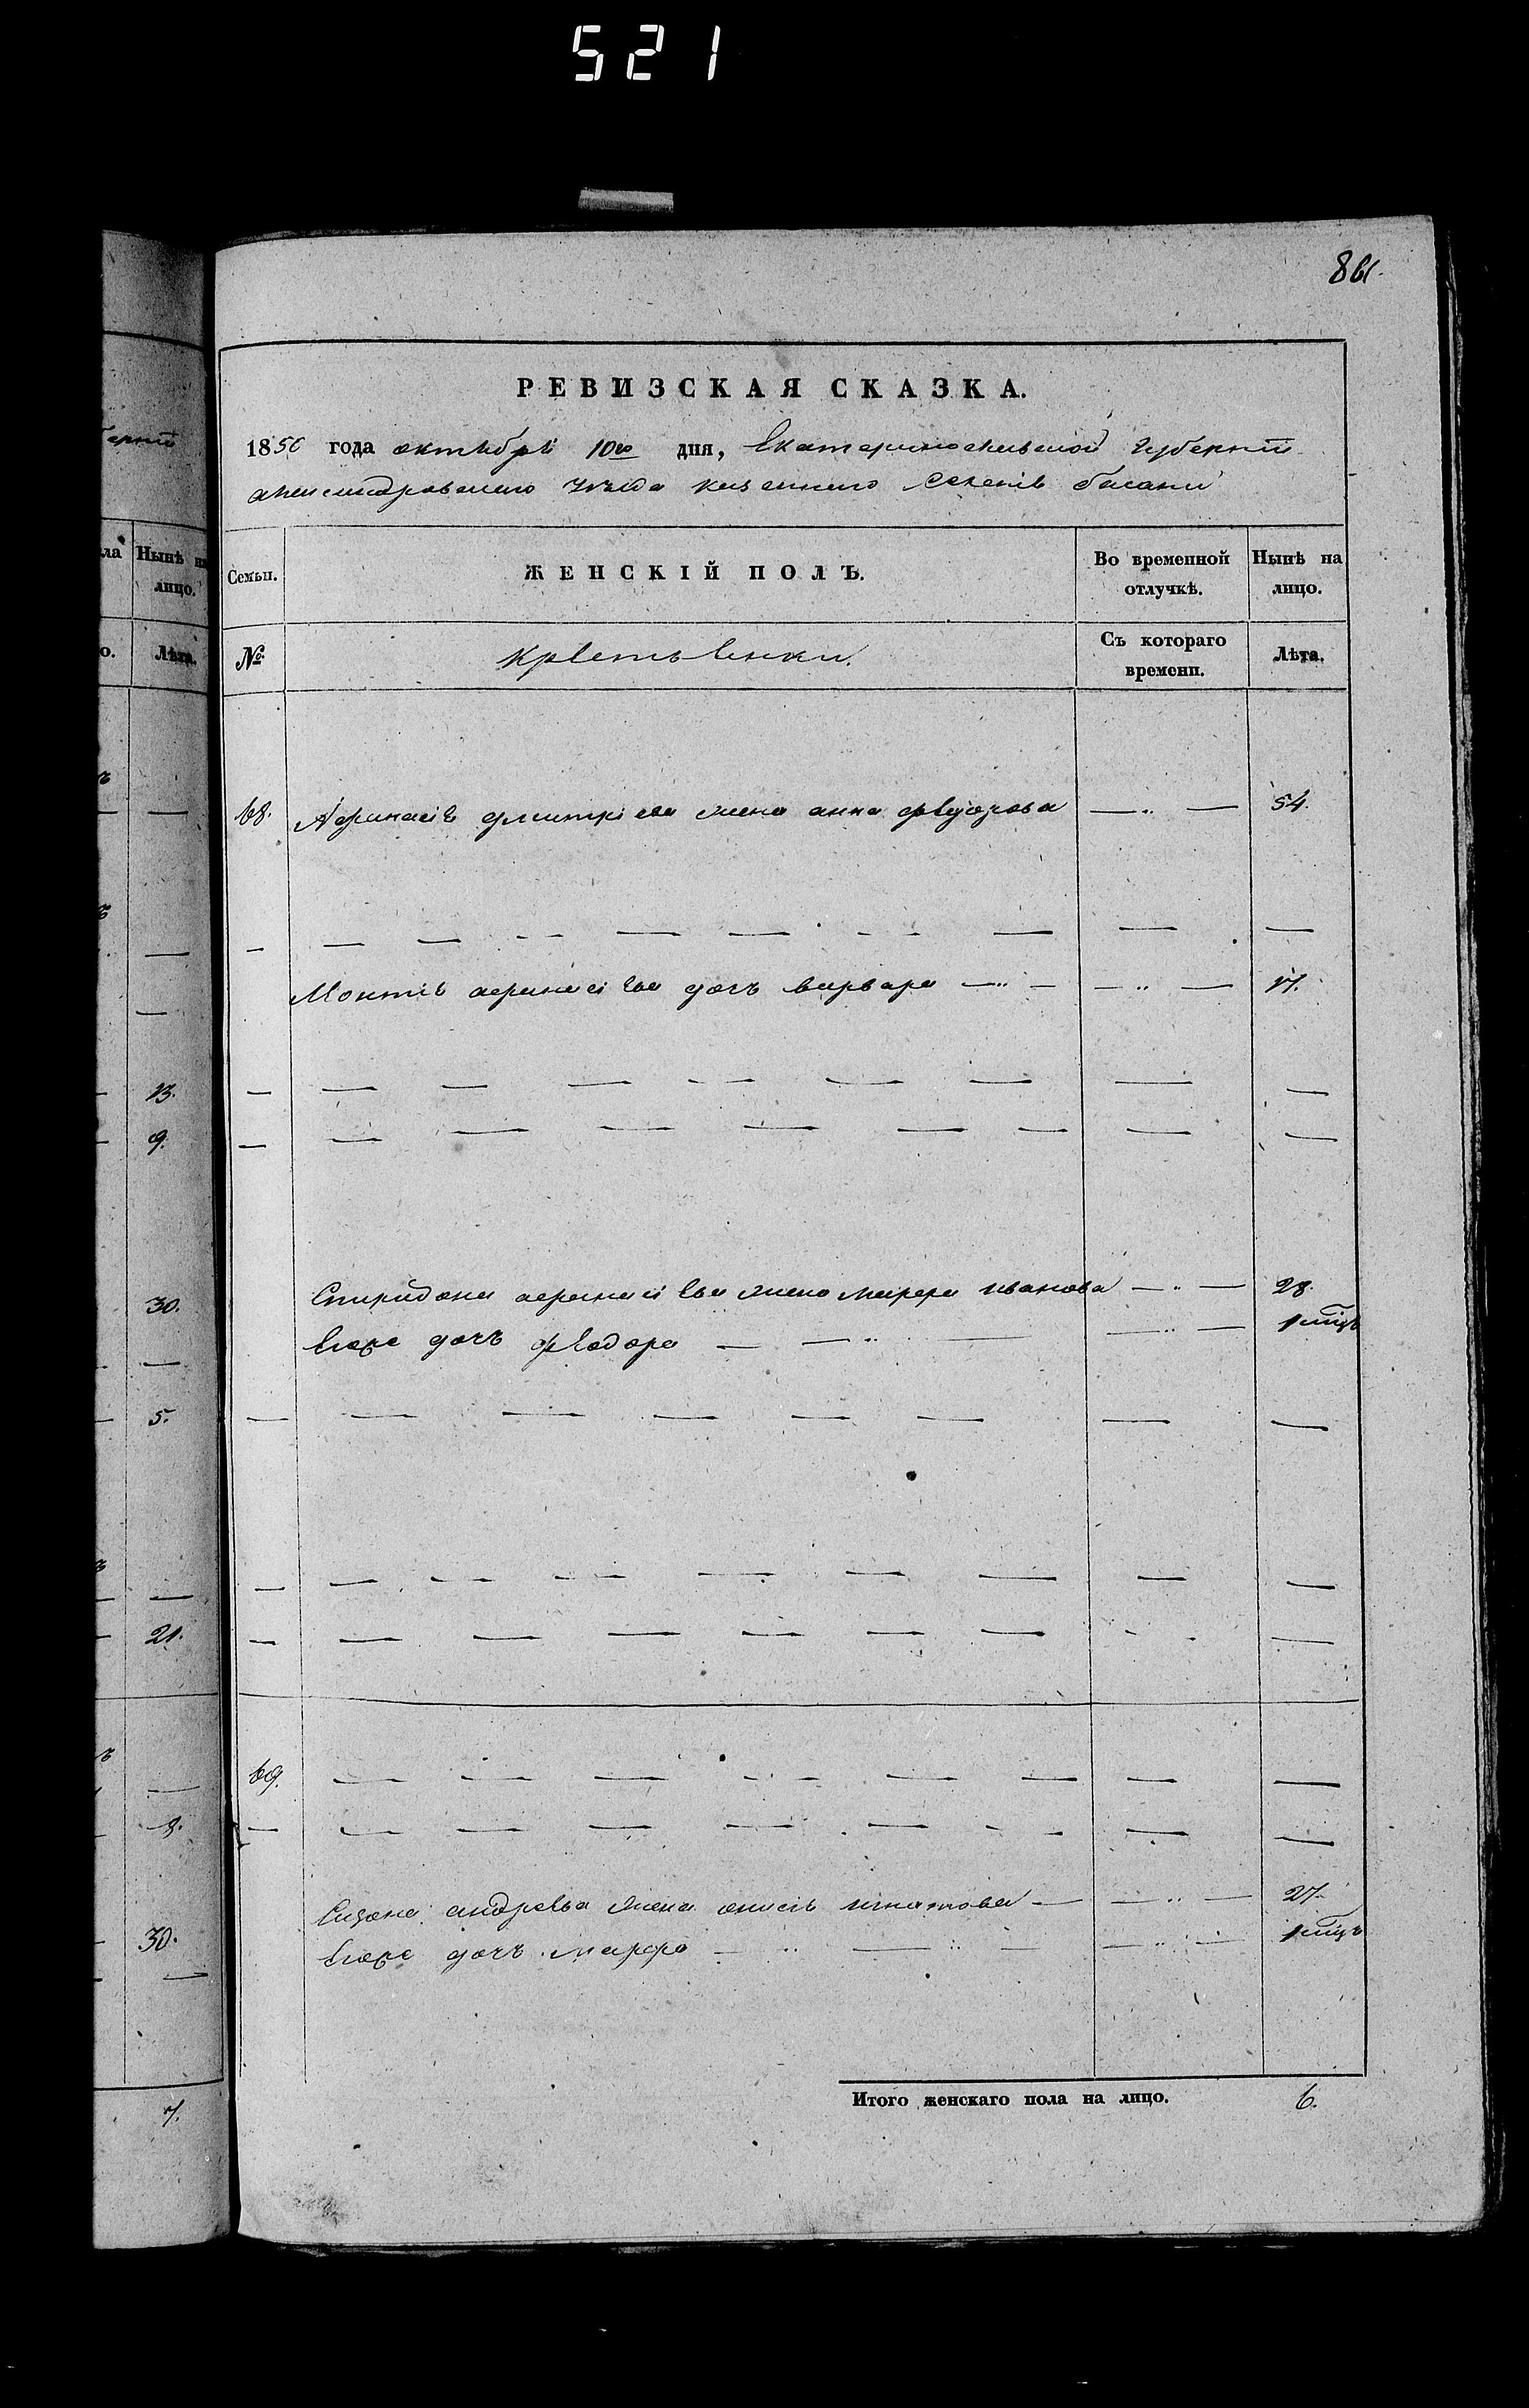 521
861.
РЕВИЗСКАЯ СКАЗКА.
1850 года октебря 10го дня, Екатеринославской губернии
александровского уезда казенного селенія басани
Семьи.
ЖЕНСКІЙ ПОЛЪ.
Во временной отлучкѣ.
Нынѣ на лицо.
№
Крестьенки.
Съ котораго времени.
Лѣта.
68. Афанасіе дмитріева жена анна феудорова — „ — 54.
афанасіева дочъ варвара — „ — — „ — 17.
Спиридона афанасіева жена марфа иванова — „ — 28.
Егоже дочъ феодора — — „ — — „ — 1 мѣц
69.
андреева жена игнатова — — „ — 27.
Егоже дочъ марфа — „ — „ — — „ — 1 мѣц
Итого женскаго пола на лицо. 6.
ерніи
ла
Нынѣ на
лицо.
о.
Лѣта.
13.
9.
30.
5.
21.
30.
7.